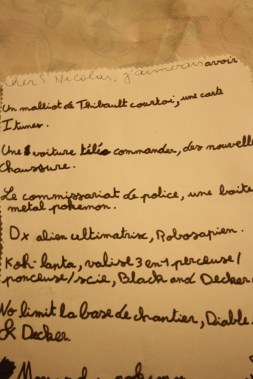 Cher S Nicolas, j'aimerais avoir
Un malliot de Thibault courtoi, une carte
Itunes.
Une voiture télé commander, des nouvelle
chaussure.
Le commissariat de police, une boite
metal pokemon.
Dx alien ultimatrix, Robosapien.
Koh-lanta, valise 3 en 1 perceuse/
ponceuse/scie, Black and Decker
No limit la base de chantier, Diable
& Decker